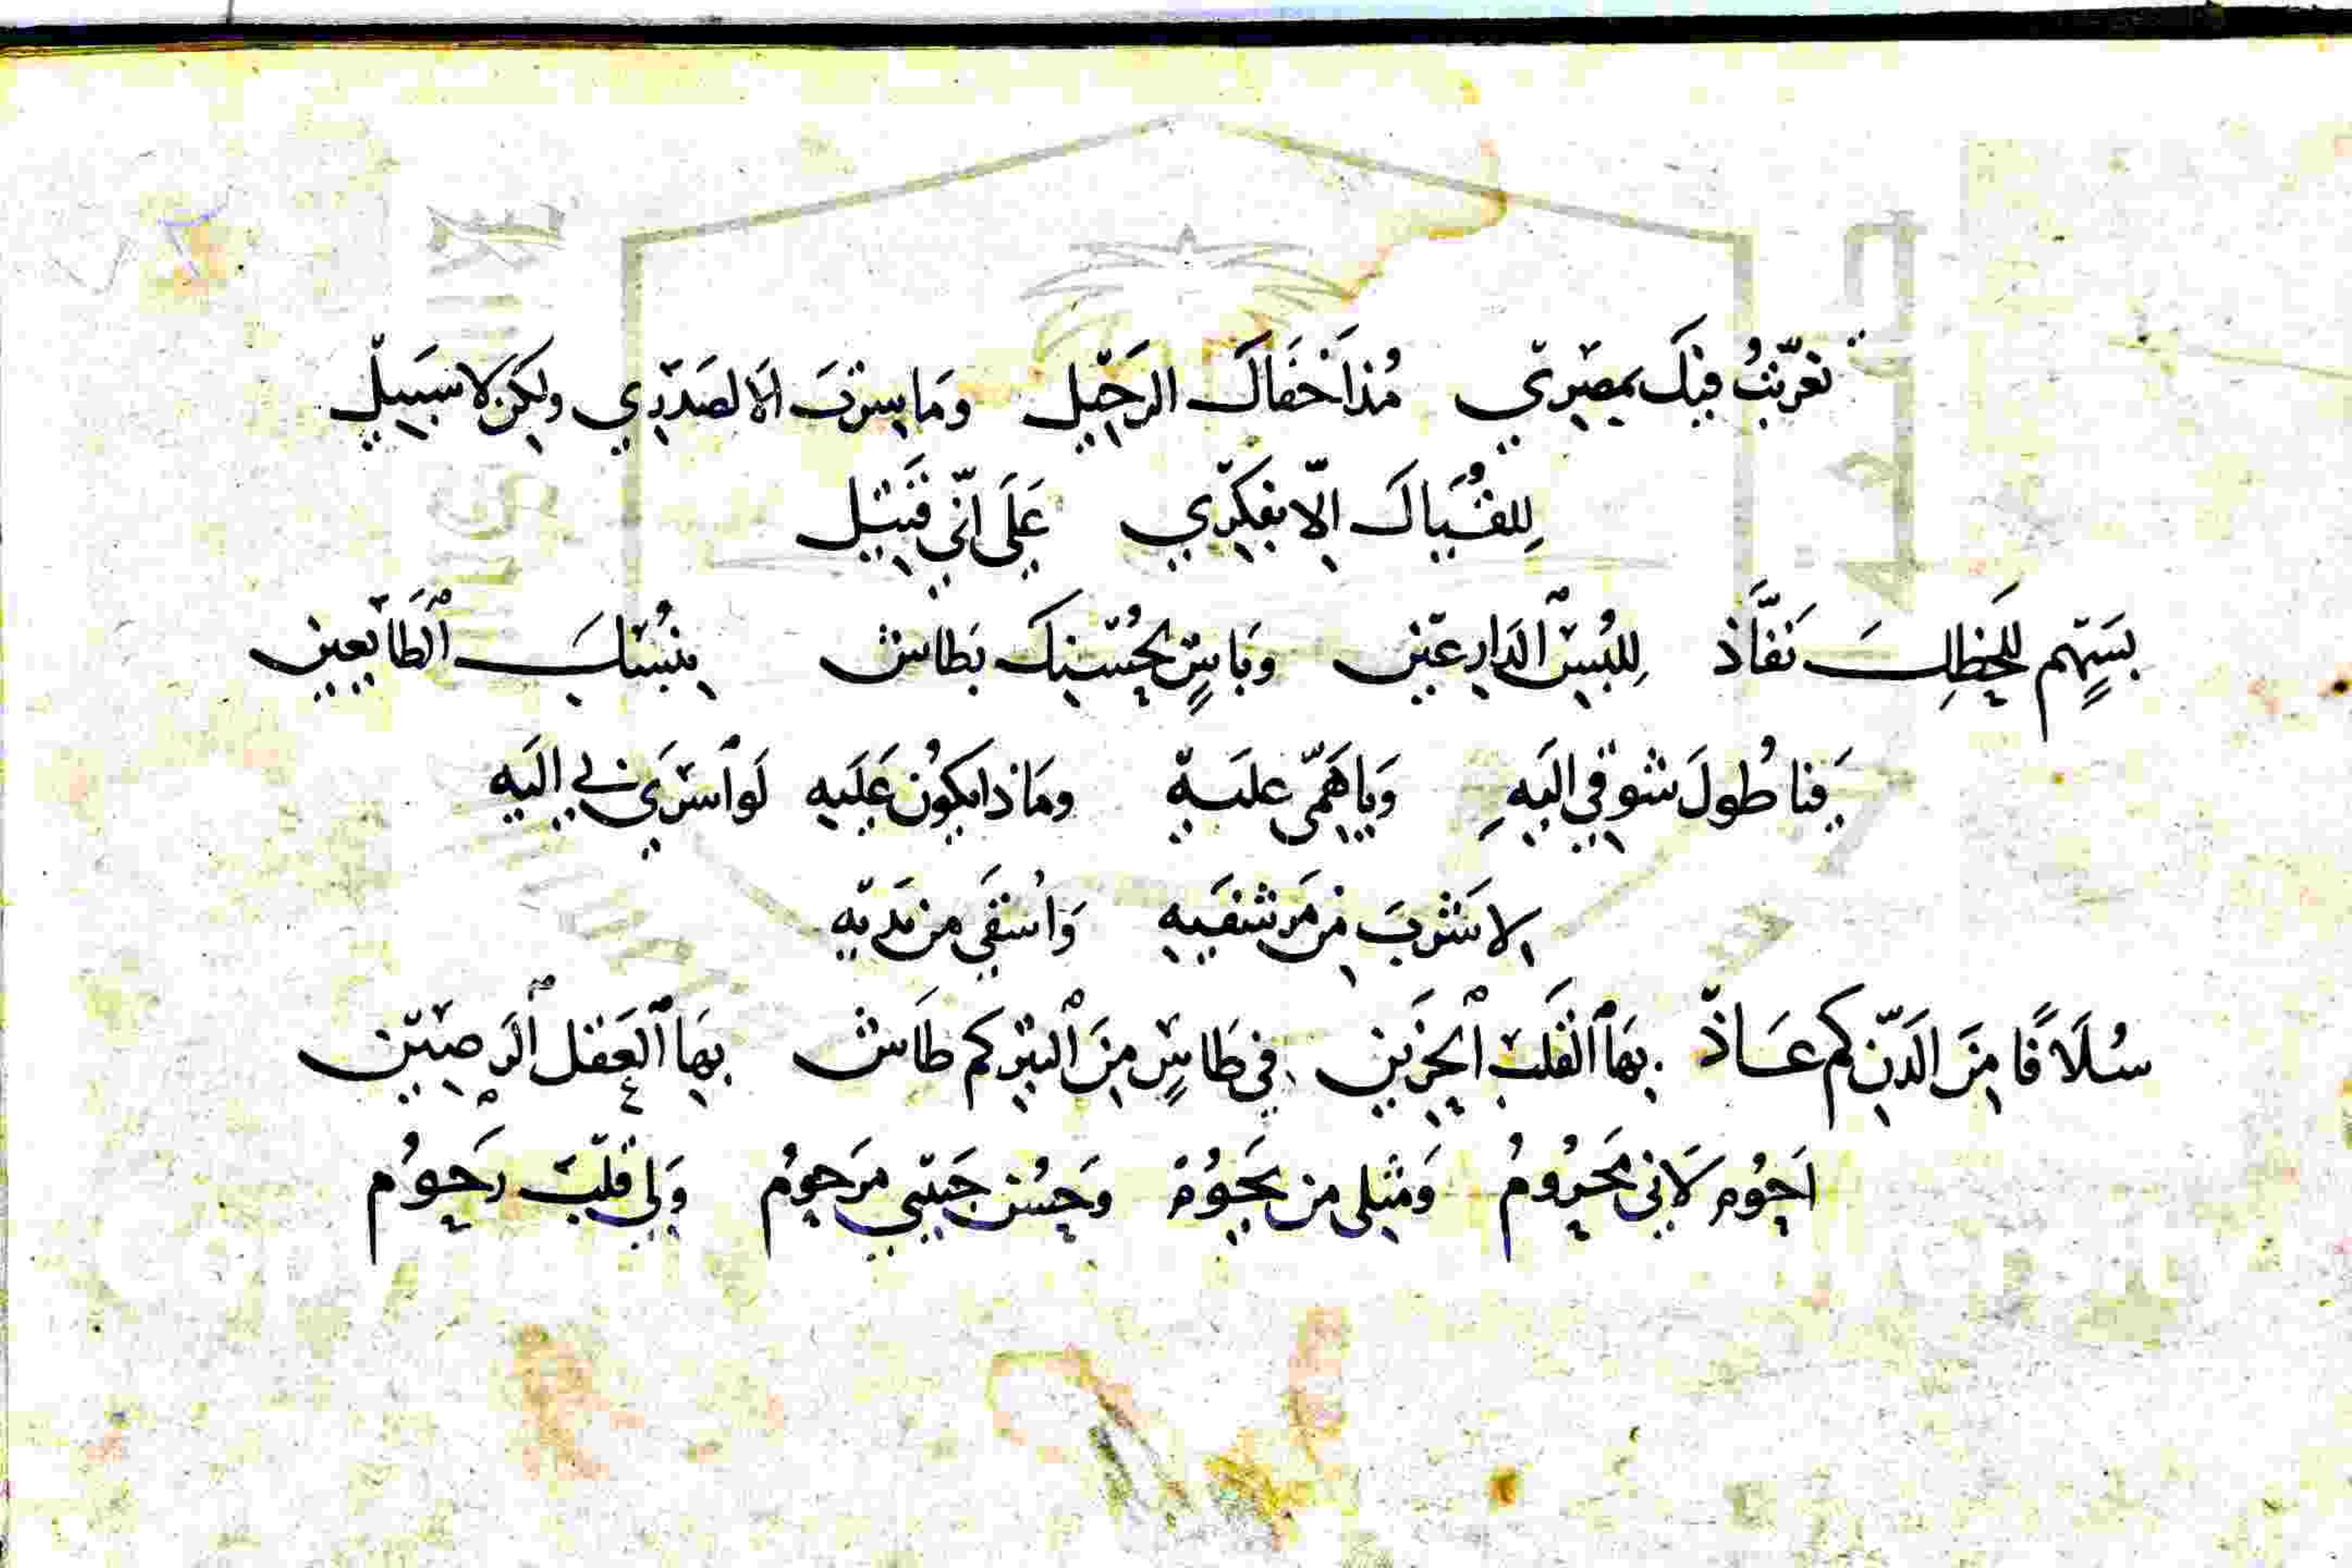 تعرّبتُ فيك بمصري مُذ اَخفَاك الرَحيل ومَا سرت اَلا لصَدري ولكن لا سَبيل
لِلقُياك اِلّا بفكري عَلَى انّي قتيل
بسَهمٍ للَحظِك نَفَّاذ لِلبُس ٱلدارعين وَبَاسٍ بحُسنك بَطاش بنُسك ٱلطَايعين
فيا طُولَ شوقي اليَهِ وَيا هَمّى عليه ومَاذا يكوُن عَلَيه لَو ٱسرَي بي اليَه
لاشَربَ من مَرشفيه وَاُسقَى من يديه
سُلَافًا مِنَ الدَنّ كم عَاذ بهَا ٱلقَلب ٱلحَزين في طَاسٍ مِنَ ٱلتبر كم طَاش بهَا ٱلعَقل ٱلرَصين
اَحُوم لَاني محرُومُ وَمثلى من يحَوُم وَحسُن حَبيبي مرَحوُم وَلي قلب رَحوُم